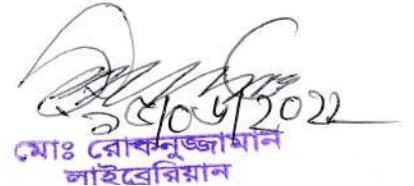 ১৫/০৬/2022
মোঃ রোকনুজ্জামান
লাইব্রেরিয়ান